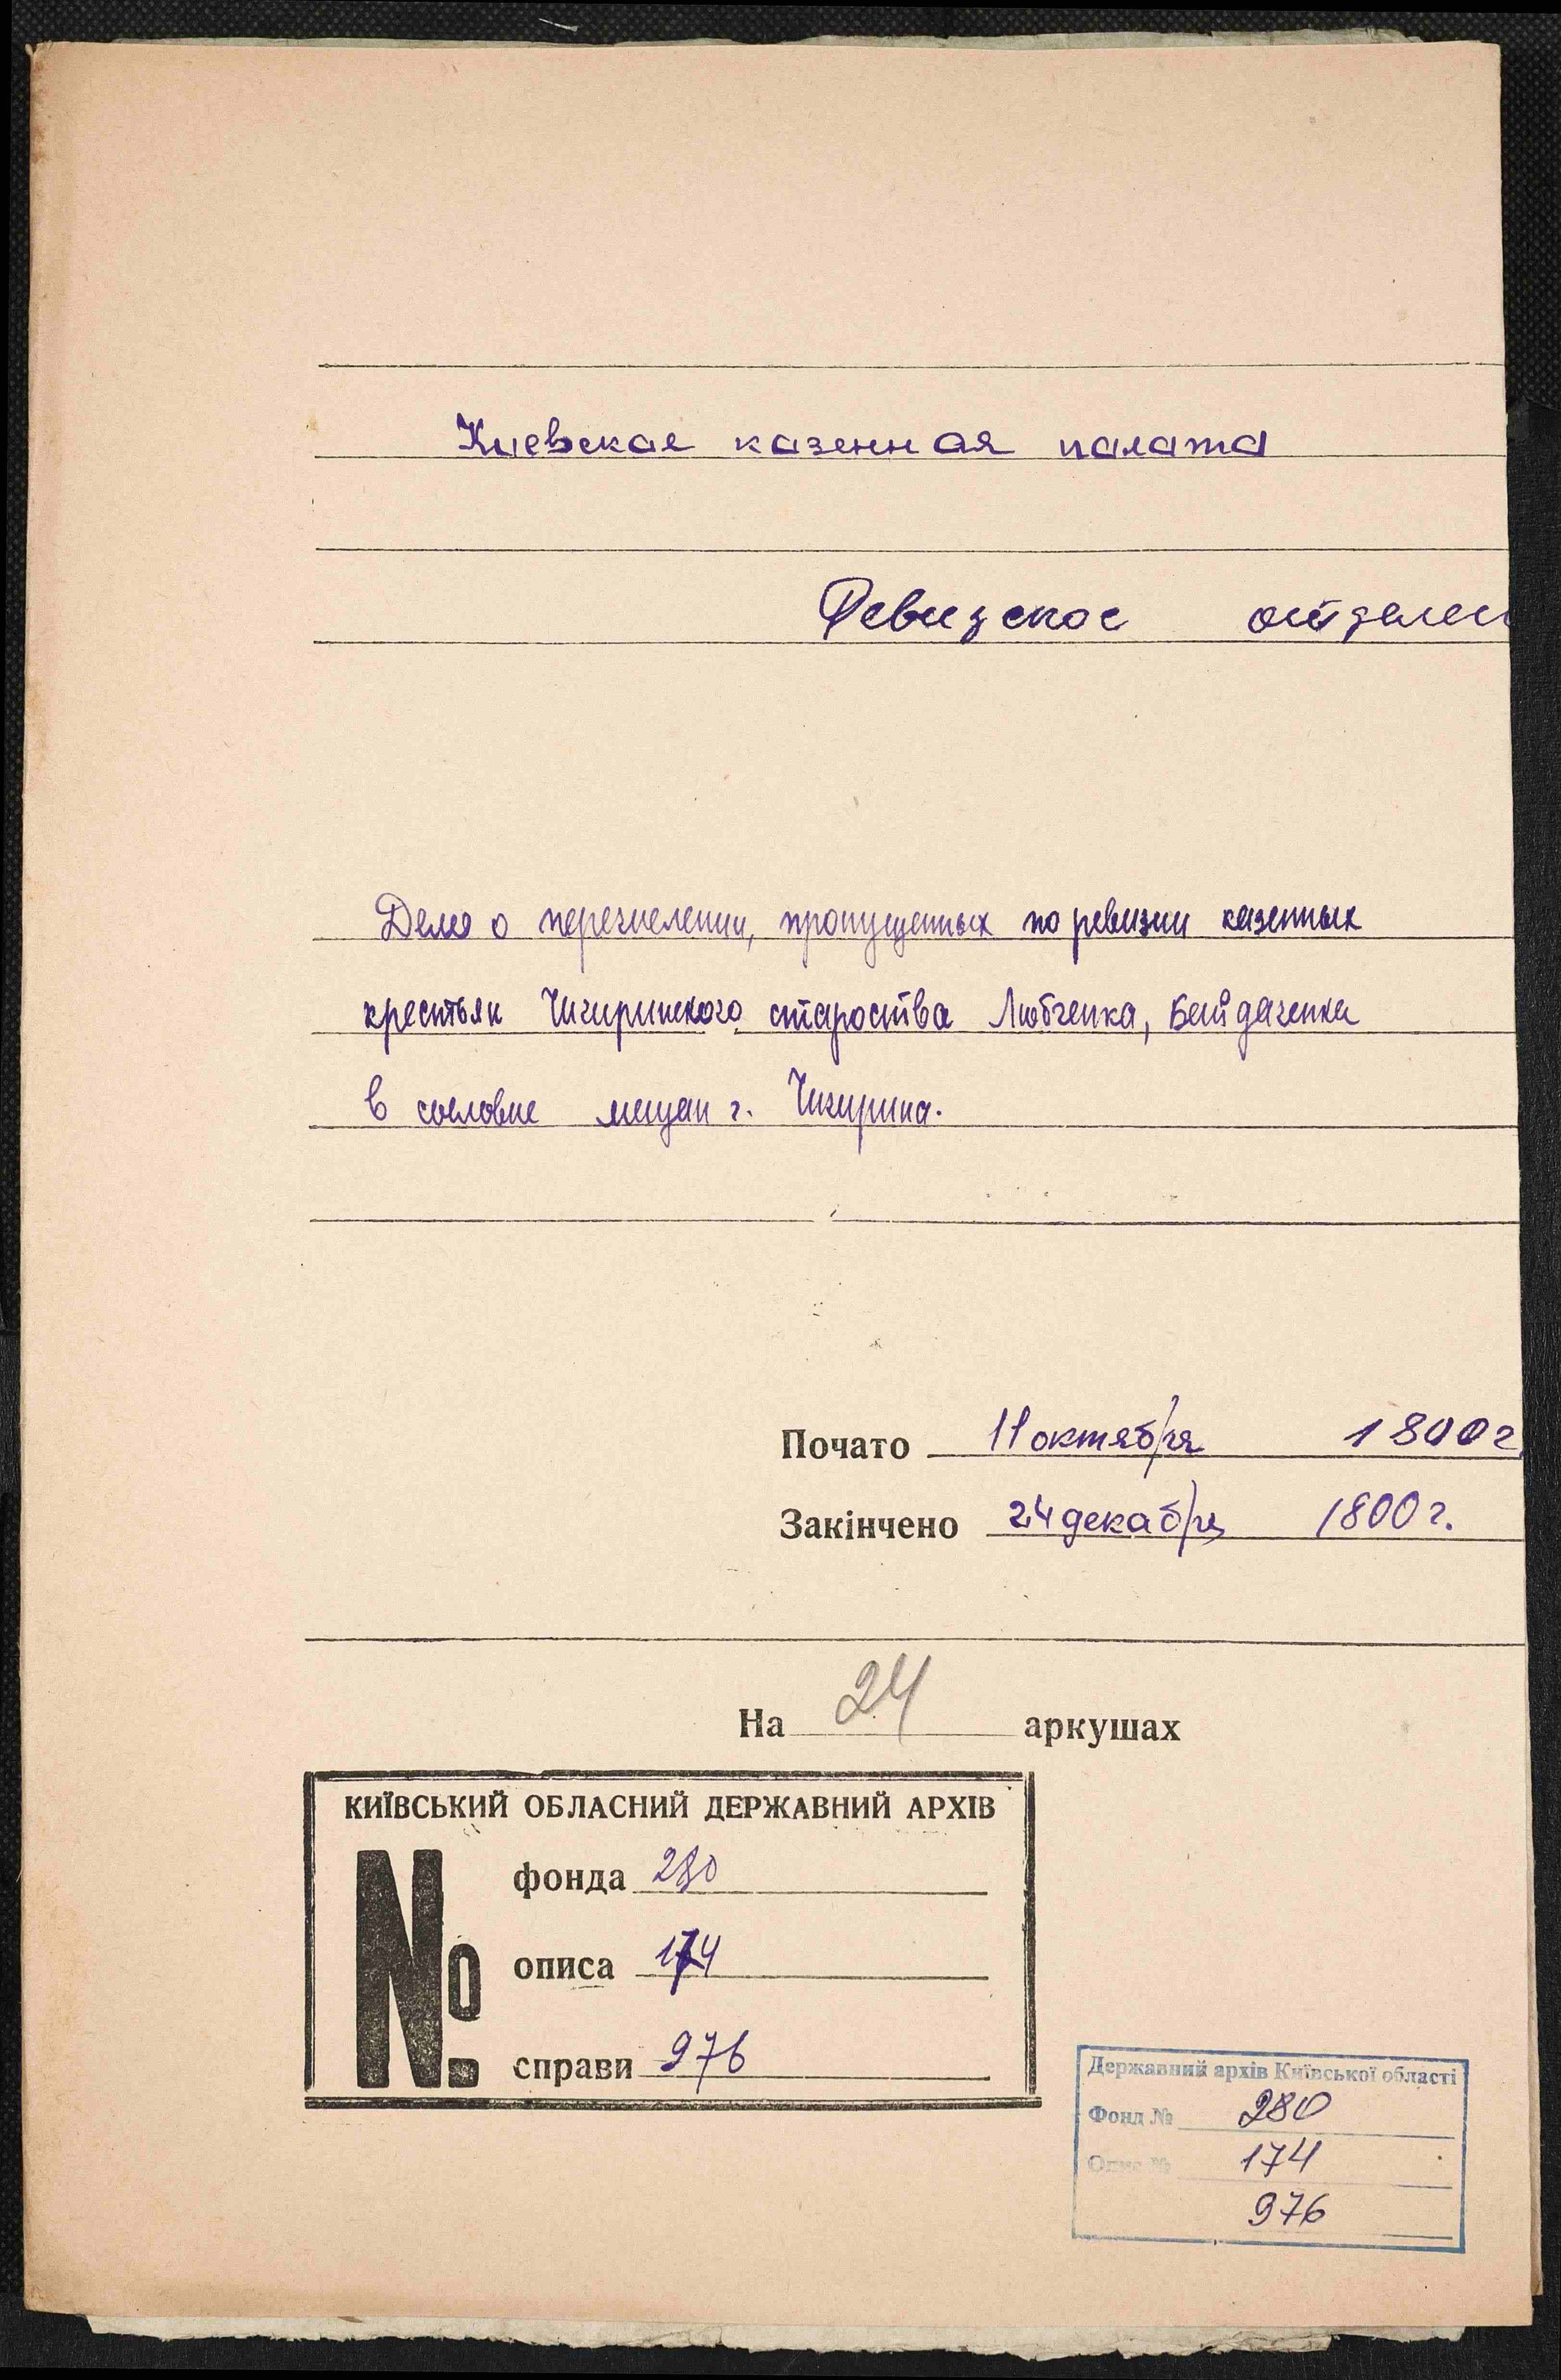 Киевская казенная палата
Ревизское отделен
Дело о перечислении, пропущенных по ревизии казенных
крестьян Чигиринского староства Любченка, Байдаченка
в сословие мещан г. Чигирина.
Почато 11 октября 1800 г
Закінчено 24 декабря 1800 г.
На 24 аркушах
КИЇВСЬКИЙ ОБЛАСНИЙ ДЕРЖАВНИЙ АРХІВ
№
фонда 280
описа 174
справи 976
Державний архів Київської області
Фонд № 280
Опис № 174
976